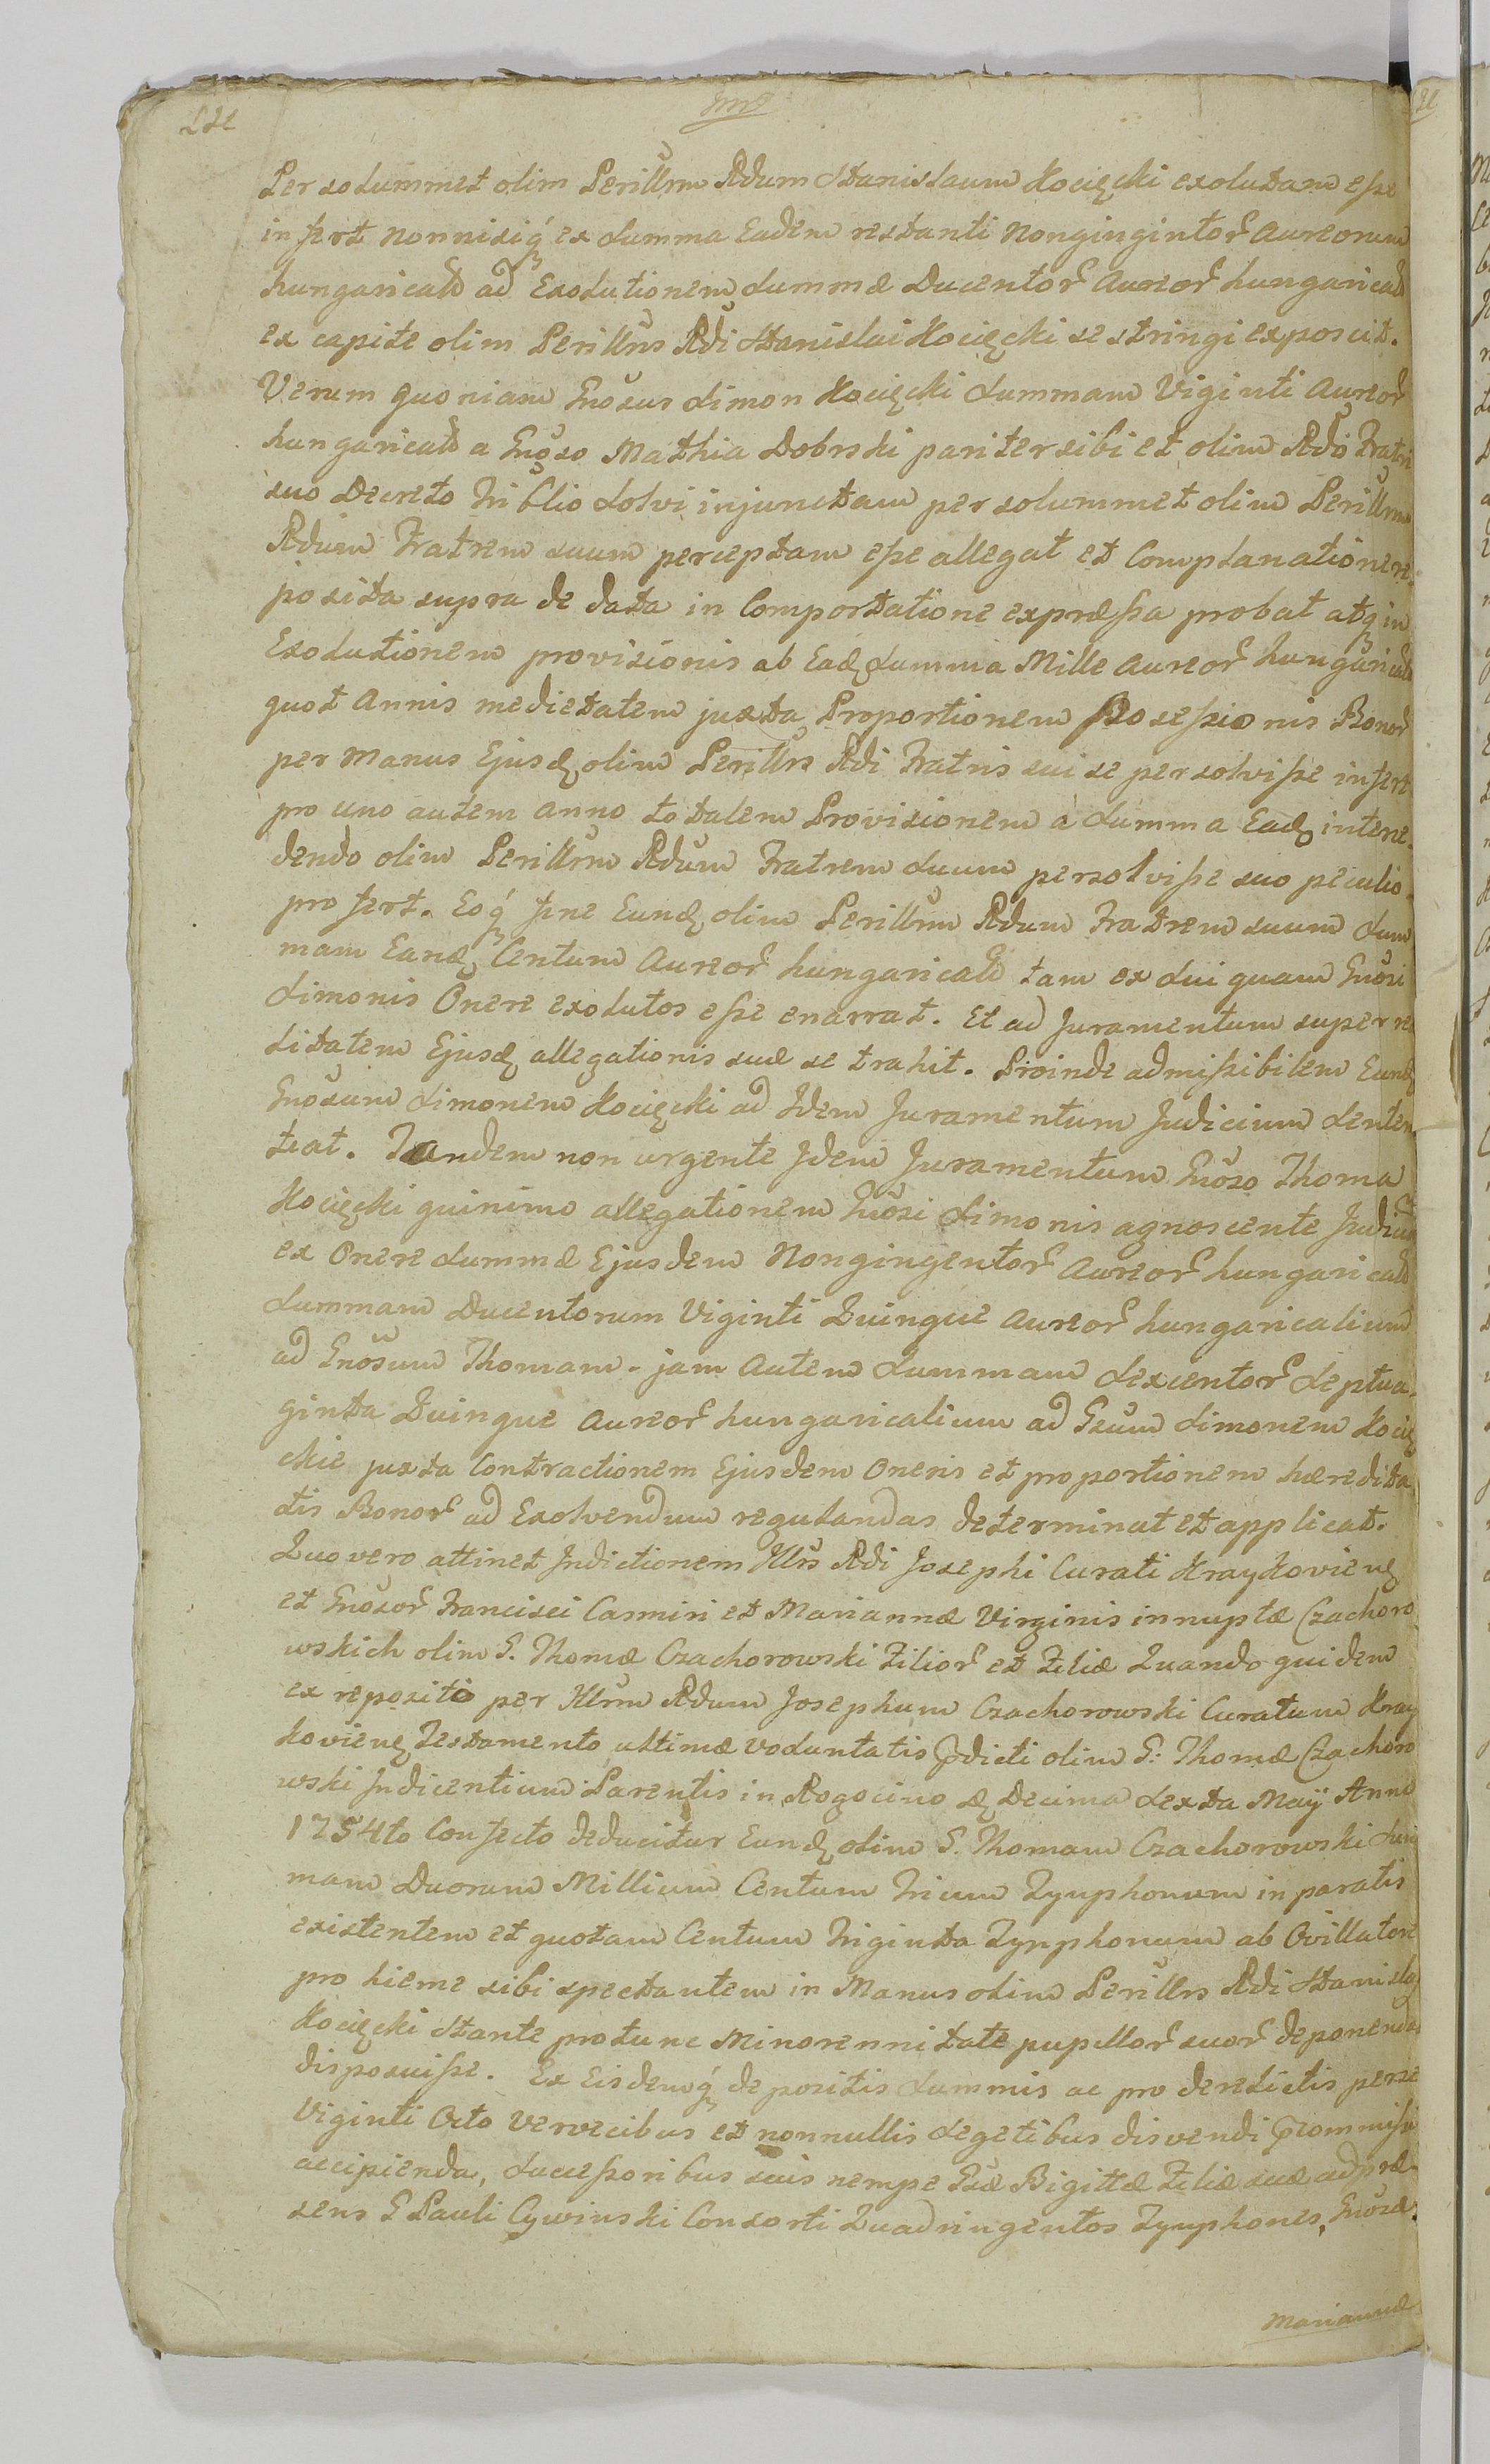 Per solummet olim Perillrm Rdum Stanislaum Kocięcki exolutam esse
infert nonnisiq́ ex Summa Eadem restanti Nongingintor̃ Aureorum
hungaricalẽ ad Exolutionem Summæ Ducentor̃ Aureor̃ hungaricalẽ
ex capite olim Perillris Rdi Stanislai Kocięcki se stringi exposcit.
Verum quoniam Gnõsus Simon Kocięcki Summam Viginti Aureor̃
hungaricalẽ a Gnõso Mathia Dobrski pariter sibi et olim Rdõ Fratri
suo Decreto Triblio Solvi injunctam per solummet olim Perillrm
Rdum Fratrem suum perceptam esse allegat et Complanatione re-
posita supra de data in Comportatione expræssa probat atq̃ in
Exolutionem provisionis ab Eaḑ Summa Mille Aureor̃ hungaricalẽ
quot Annis medietatem juxta Proportionem Possessionis Bonor̃
per Manus Ejusḑ olim Perillris Rdi Fratris sui se persolvisse infert
pro uno autem anno totalem Provisionem à Summa Eaḑ interce-
dendo olim Perillrm Rdum Fratrem Suum persolvisse suo peculio
profert. Eoq́ fine Eunḑ olim Perillrm Rdum Fratrem suum Sum
mam Eanḑ Centum Aureor̃ hungaricalẽ tam ex Sui quam Gnõsi
Simonis Onere exolutos esse enarrat. Et ad Juramentum super re
litatem Ejusḑ allegationis suæ se trahit. Proinde admissibilem Eunḑ
Gnõsum Simonem Kocięcki ad Idem Juramentum Judicium Senten
tiat. Tandem non urgente Idem Juramentum Gnõso Thoma
Kocięcki quinimo allegationem Gnõsi Simonis agnoscente Judium
ex Onere Summæ Ejusdem Nongingentor̃ Aureor̃ hungaricalẽ
Summam Ducentorum Viginti Quinque Aureor̃ hungaricalium
ad Gnõsum Thomam. jam Autem Summam Sexcentor̃ Septua-
ginta Quinque Aureor̃ hungaricalium ad Gsum Simonem Kocię
ckie juxta Contractionem Ejusdem Oneris et proportionem hæredita
tis Bonor̃ ad Exolvendum regulandas determinat et applicat.
Quo vero attinet Indictionem Illris Rdi Josephi Curati Kraykovienȩ
et Gnõsor̃ Francisci Casmiri et Mariannæ Virginis innuptæ Czachoro
wskich olim G. Thomæ Czachorowski Filior̃ et Filiæ Quando quidem
ex reposito per Illrm Rdum Josephum Czachorowski Curatum Kray
kovienȩ Testamento ultimæ Voluntatis p̃dicti olim G: Thomæ Czachoro
wski Indicentium Parentis in Rogocino ḑ Decima Sexta Maÿ Anno
1754to Confecto deducitur Eunḑ olim G. Thomam Czachorowski Sum
mam Duorum Millium Centum Trium Tynphonum in paratis
existentem et quotam Centum Triginta Tynphonum ab Ovillatore
pro hieme sibi spectantem in Manus olim Perillris Rdi Stanislai
Kocięcki Stante protunc Minorennitate pupillor̃ suor̃ deponendas
disposuisse. Ex Eisdemq́ depositis Summis ac pro derelictis per se
Viginti Octo Vervecibus et nonnullis Segetibus disvendi p̃commissi
accipienda, Successoribus suis nempe Gsæ Brigittæ Filiæ suæ ad præ-
sens G Pauli Cywinski Consorti Quadringentos Tynphones, Gnõsæ
Mariannæ